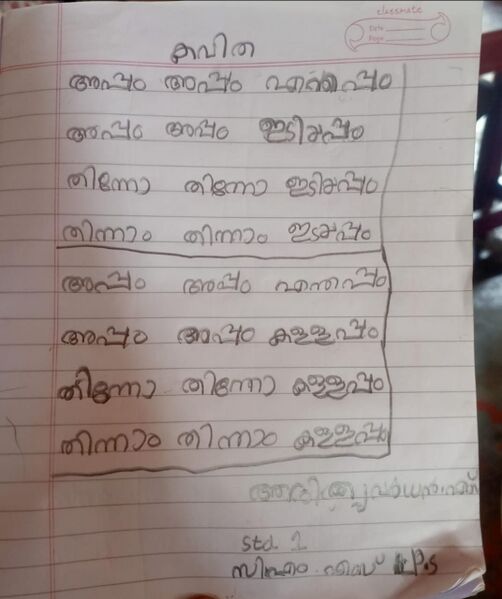 classmate
Date
Page
കവിത
അപ്പം അപ്പം എന്തപ്പം
അപ്പം അപ്പം ഇടിയപ്പം
തിന്നോ തിന്നോ ഇടിയപ്പം
തിന്നാം തിന്നാം ഇടയപ്പം
അപ്പം അപ്പം എന്തപ്പം
അപ്പം അപ്പം കള്ളപ്പം
തിന്നോ തിന്നോ കള്ളപ്പം
തിന്നാം തിന്നാം കള്ളപ്പം
Std 1
എസ് P.S